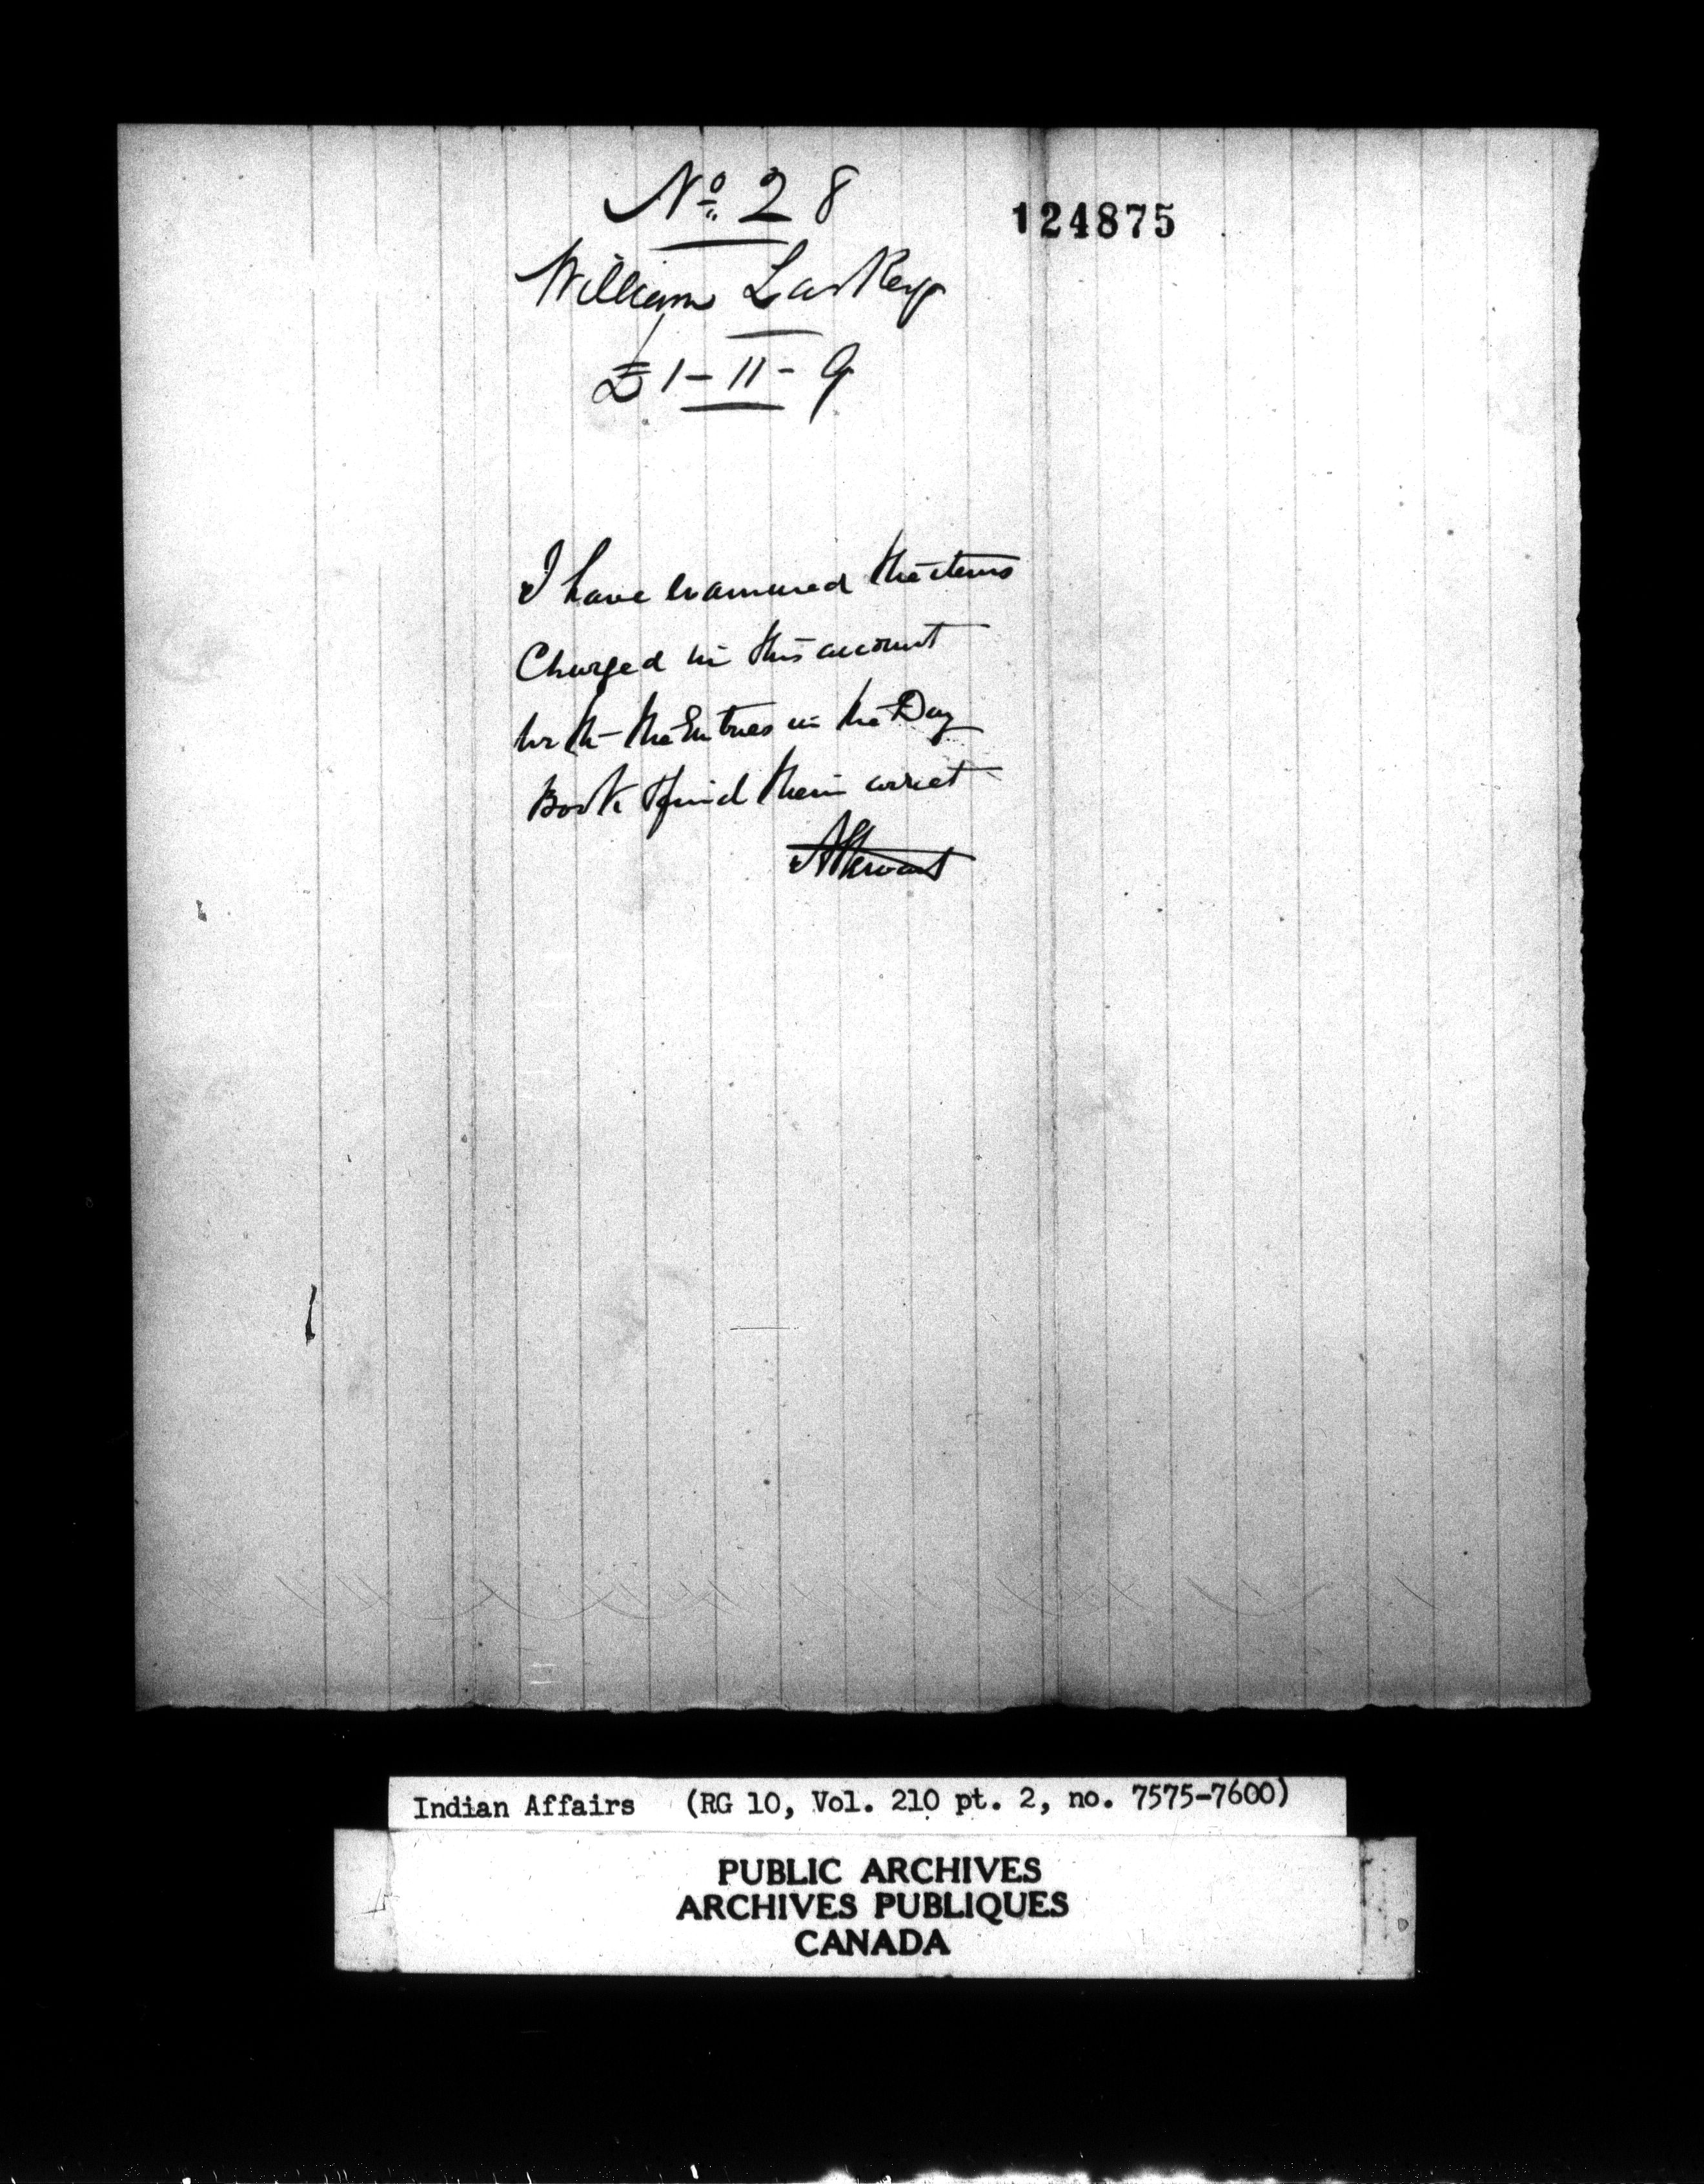 No 28
124875
William Laskey
£1-11-9
I have examined the items
Charged in this account
with the Entries in the Day
Book & find them correct
Indian Affairs (RG 10, Vol. 210 pt. 2, no. 7575-7600)
PUBLIC ARCHIVES
ARCHIVES PUBLIQUES
CANADA